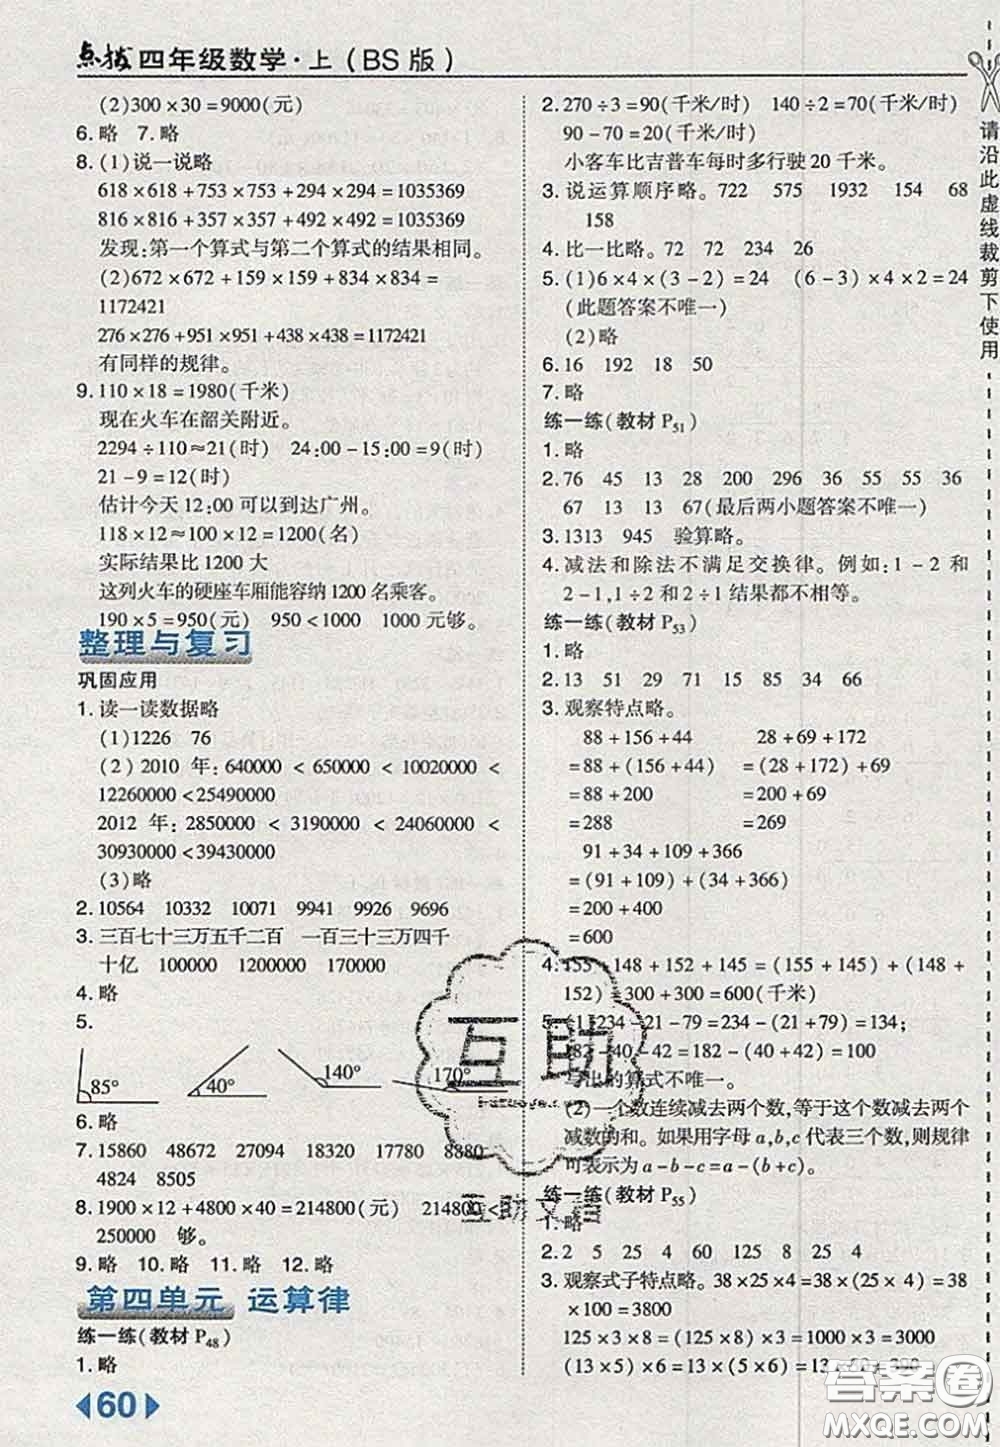 点拨 四年级数学·上(BS版)
(2)300×30=9000(元)
6.略 7.略
8.(1)说一说略
618×618+753×753+294×294=1035369
816×816+357×357+492×492=1035369
发现:第一个算式与第二个算式的结果相同。
(2)672×672+159×159+834×834=
1172421
276×276+951×951+438×438=1172421
有同样的规律。
9.110×18=1980(千米)
现在火车在韶关附近。
2294÷110≈21(时) 24:00-15:00=9(时)
21-9=12(时)
估计今天12:00可以到达广州。
118×12≈100×12=1200(名)
实际结果比1200大
这列火车的硬座车厢能容纳1200名乘客。
190×5=950(元) 950<1000 1000元够。
整理与复习
巩固应用
1.读一读数据略
(1)1226 76
(2)2010年:640000<650000<10020000<
12260000<25490000
2012年:2850000<3190000<24060000<
30930000<39430000
(3)略
2.10564 10332 10071 9941 9926 9696
3.三百七十三万五千二百 一百三十三万四千
十亿 100000 1200000 170000
4.略
5.
85° 40° 140° 170°
6.略
7.15860 48672 27094 18320 17778 8880
4824 8505
8.1900×12+4800×40=214800(元) 214800<
250000 够。
9.略 10.略 11.略 12.略
第四单元 运算律
练一练(教材P48)
1.略
60
2.270÷3=90(千米/时) 140÷2=70(千米/时)
90-70=20(千米/时)
小客车比吉普车每时多行驶20千米。
3.说运算顺序略。722 575 1932 154 68
158
4.比一比略。72 72 234 26
5.(1)6×4×(3-2)=24 (6-3)×4×2=24
(此题答案不唯一)
(2)略
6.16 192 18 50
7.略
练一练(教材P51)
1.略
2.76 45 13 28 200 296 36 55 55 36
67 13 13 67(最后两小题答案不唯一)
3.1313 945 验算略。
4.减法和除法不满足交换律。例如:1-2和
2-1,1÷2和2÷1结果都不相等。
练一练(教材P53)
1.略
2.13 51 29 71 15 85 34 66
3.观察特点略。
88+156+44 28+69+172
=88+(156+44) =(28+172)+69
=88+200 =200+69
=288 =269
91+34+109+366
=(91+109)+(34+366)
=200+400
=600
4.155+148+152+145=(155+145)+(148+
152)=300+300=600(千米)
5.(1)234-21-79=234-(21+79)=134;
182-40-42=182-(40+42)=100
写出的算式不唯一。
(2)一个数连续减去两个数,等于这个数减去两个
减数的和。如果用字母a,b,c代表三个数,则规律
可表示为a-b-c=a-(b+c)。
练一练(教材P55)
1.略
2.2 5 25 4 60 125 8 25 4
3.观察式子特点略。38×25×4=38×(25×4)=38
×100=3800
125×3×8=(125×8)×3=1000×3=3000
(13×5)×6=13×(5×6)=13×30=390
请沿此虚线裁剪下使用
互助
互助文档
答案圈
MXQE.COM